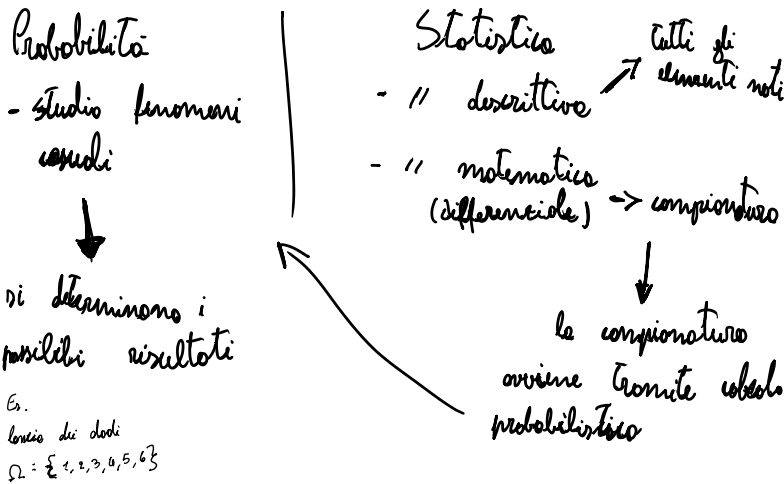 Probabilità
- studio fenomeni
casuali
si determinano i
possilibi risultati
Es.
lancio dei dadi
Ω = {1,2,3,4,5,6}
Statistica
- " descrittiva → tutti gli
elementi noti
- " matematica
(differenziale) → campionatura
la campionatura
avviene tramite calcolo
probabilistico